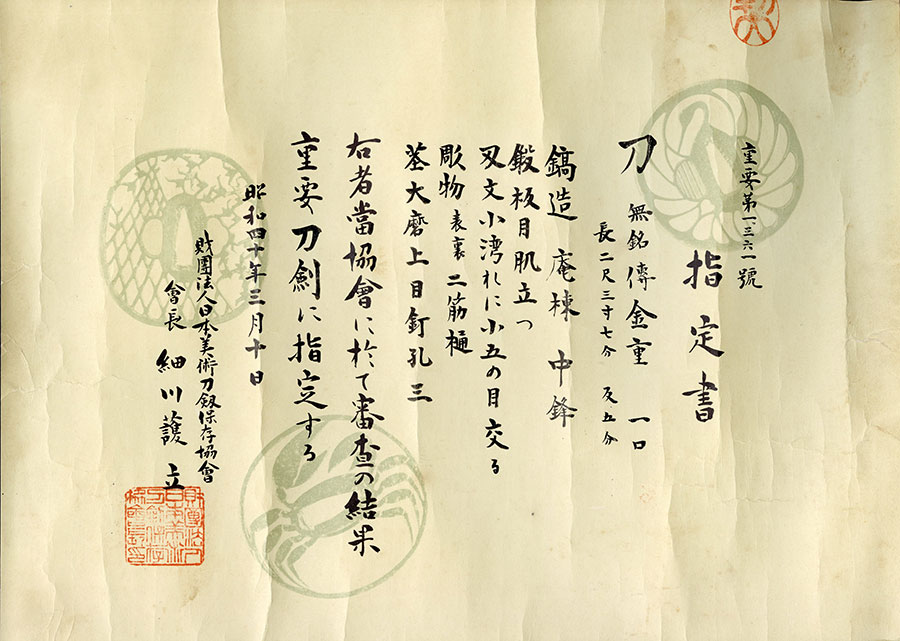 重要第一三六一號
指定書
刀 無銘傳金重 一口
長二尺三寸七分 反五分
鎬造 庵棟 中鋒
鍛板目肌立つ
刄文小湾れに小五の目交る
彫物 表裏 二筋樋
茎大磨上目釘孔三
右者當協會に於て審査の結果
重要刀劍に指定する
昭和四十年三月十日
財團法人日本美術刀剱保存協會
會長 細川護立